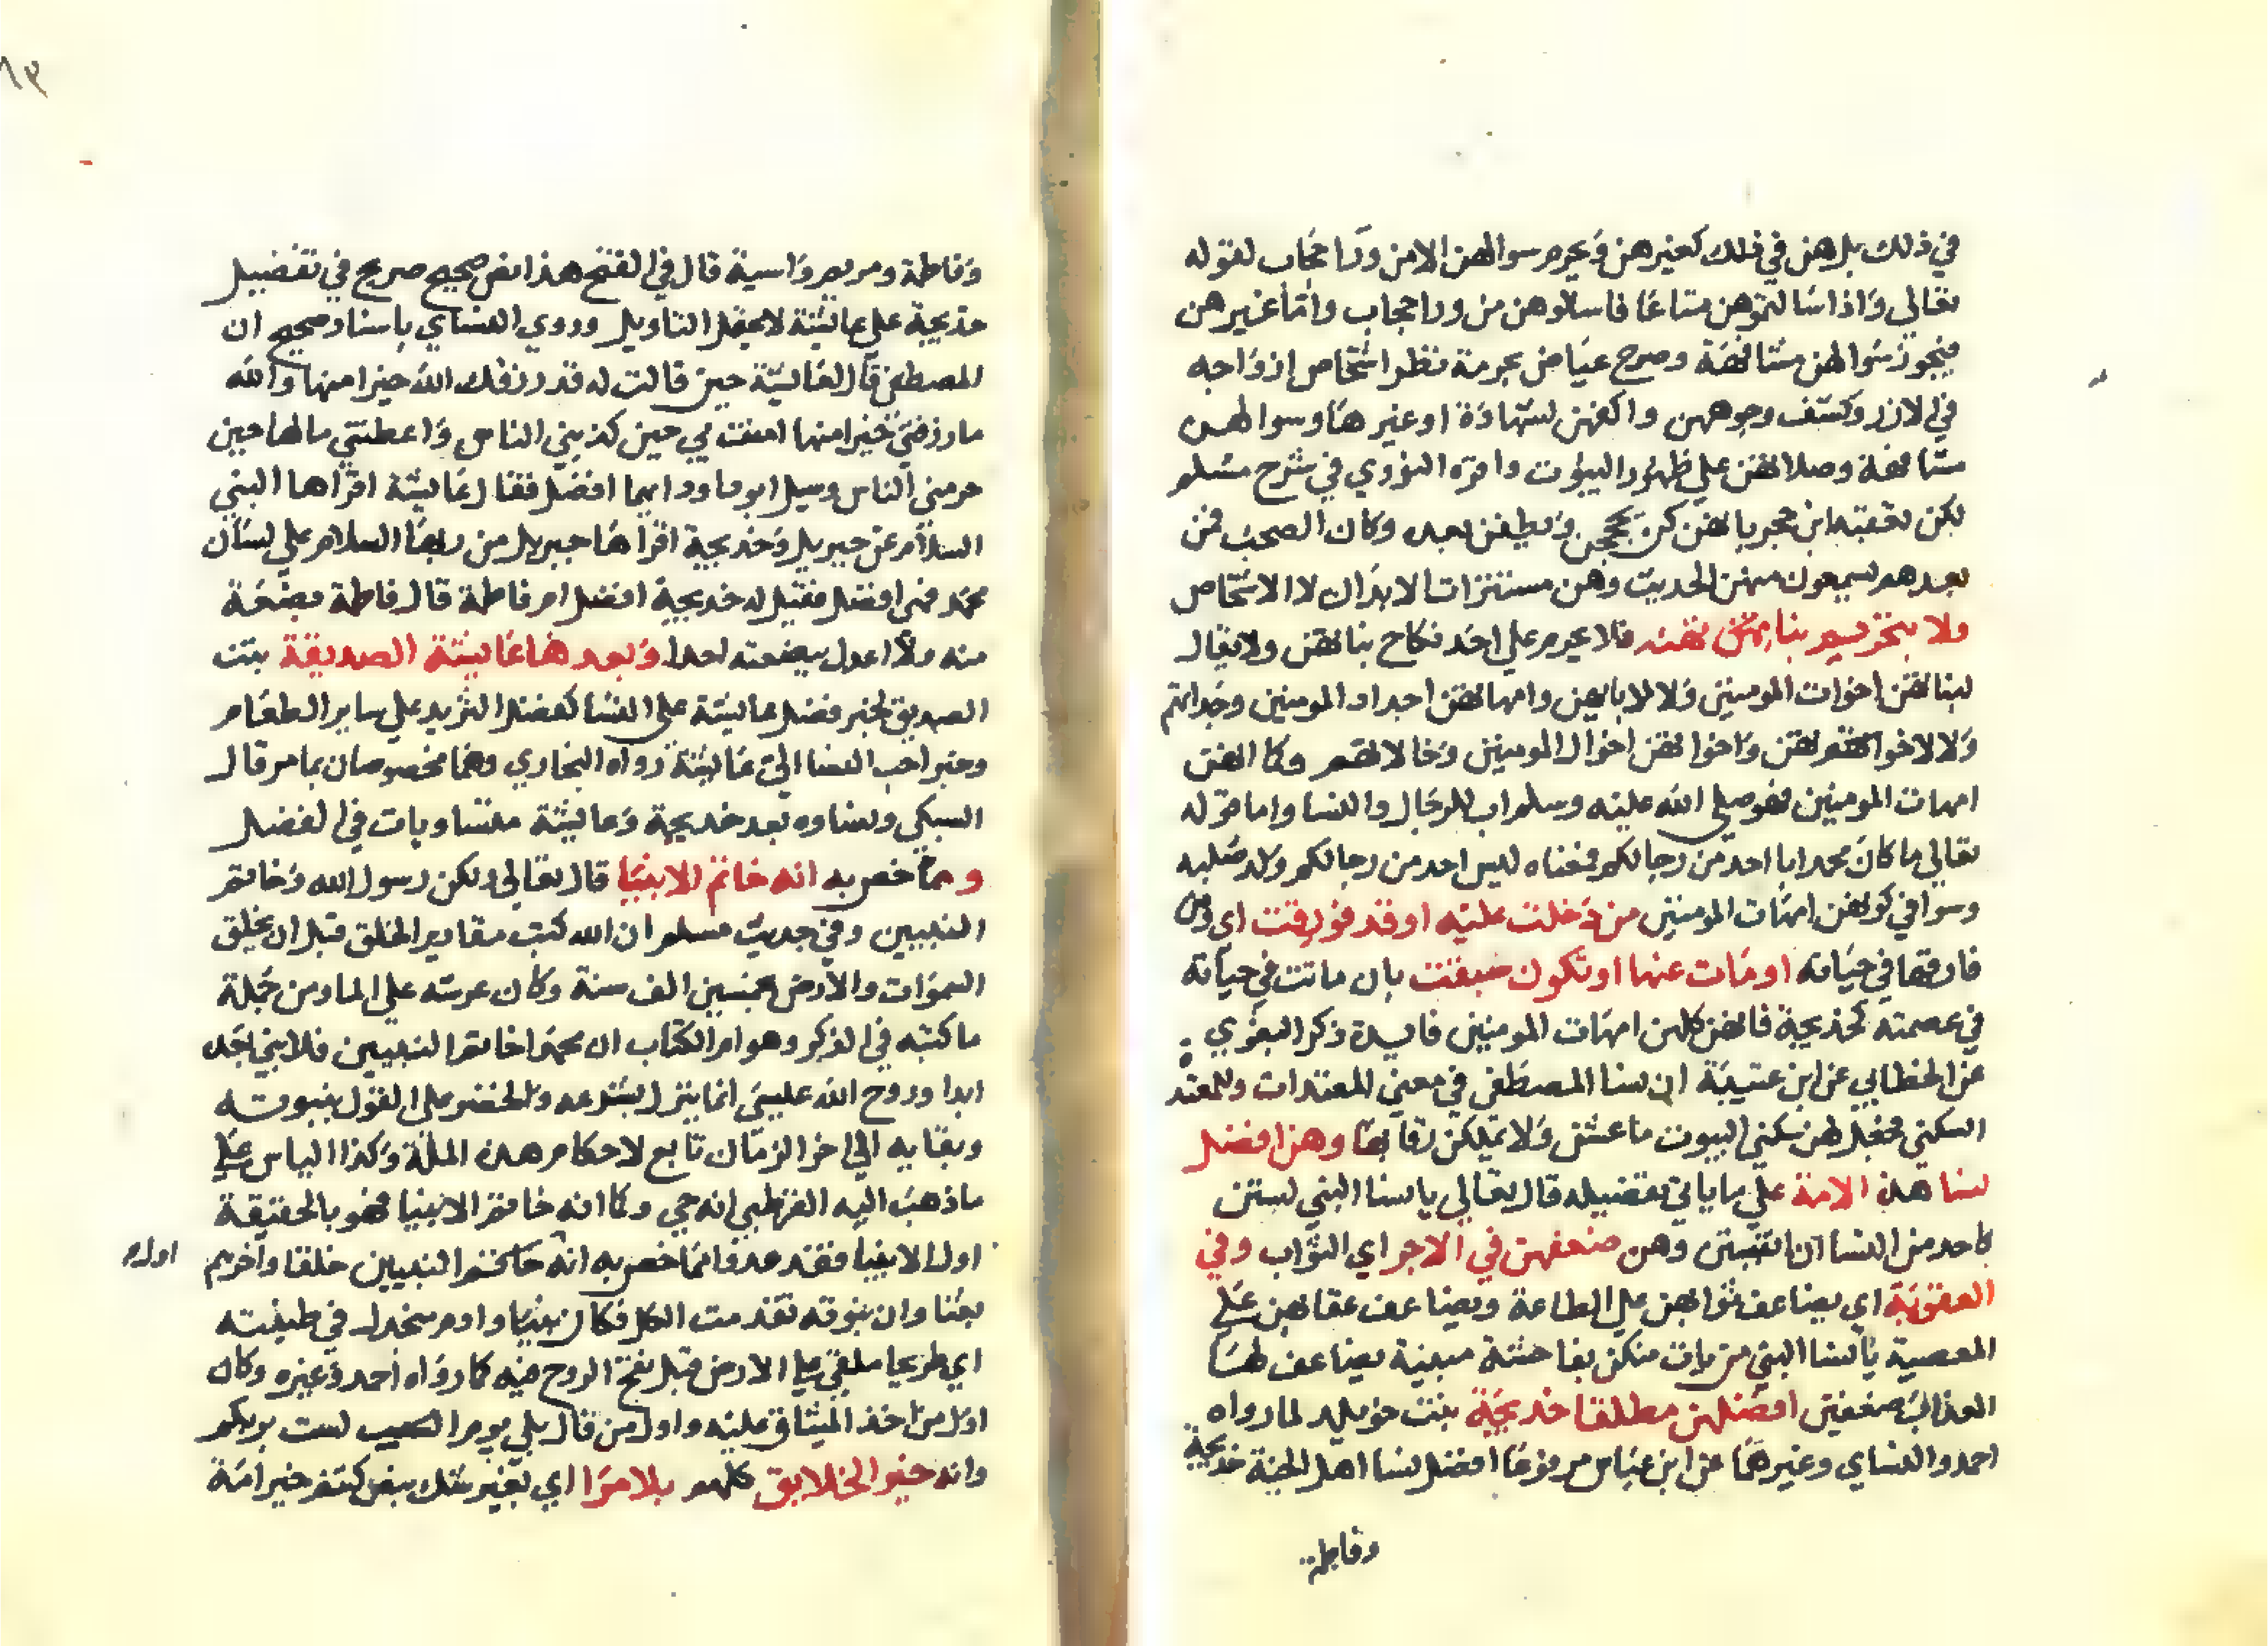 في ذلك بل هن في ذلك كغيرهن ويحرم سوالهن الا من ورا حجاب لقوله
تعالى واذا سالتموهن متاعا فاسلوهن من ورا حجاب واما غيرهن
فيجوز سوالهن مشافهة وصرح عياض بحرمة نظر اشخاص ازواجه
في الازر وكشف وجوههن واكفهن لشهادة او غيرها وسوالهن
مشافهة وصلاتهن علي ظهور البيوت واقره النووي في شرح مسلم
لكن تعقبه ابن حجر بانهن كن يحججن ويطفن بعده وكان الصحب فمن
بعدهم يسمعون منهن الحديث وهن مستترات الابدان لا الاشخاص
ولا بتحريم بناتهن تفته فلا يحرم علي احد نكاح بناتهن ولا يقال
لبناتهن اخوات المومنين ولا لابايهن وامهاتهن اجداد المومنين وجداتهم
ولا لاخواتهم لهن واخواتهن اخوال المومنين وخالاتهم وكما انهن
امهات المومنين فهو صلى الله عليه وسلم اب للرجال والنسا واما قوله
تعالى ما كان محمد ابا احد من رجالكم فمعناه ليس احد من رجالكم ولد صلبه
وسوا في كونهن امهات المومنين من دخلت عليه او قد فورقت اي ومن
فارقها في حياته او مات عنها او تكون سبقت بان ماتت في حياته
في عصمته كخديجة فانهن كلهن امهات المومنين فايدة ذكر البغوي
عن الخطابي عن ابن عيينة ان نسا المصطفى في معنى المعتدات وللمعتدة
السكنى فجعل لهن سكنى البيوت ما عشن ولا يملكن رقابها وهن افضل
نسا هذه الامة علي ما ياتي تفضيله قال تعالى يا نسا النبي لستن
كاحد من النسا ان اتقيتن وهن ضعفهن في الاجر اي الثواب وفي
العقوبة اي يضاعف ثوابهن علي الطاعة ويضاعف عقابهن علي
المعصية يا نسا النبي من يات منكن بفاحشة مبينة يضاعف لها
العذاب ضعفين افضلهن مطلقا خديجة بنت خويلد لما رواه
احمد والنساي وغيرهما عن ابن عباس مرفوعا افضل نسا اهل الجنة خديجة
وفاطمة
وفاطمة ومريم واسية قال في الفتح هذا نص صحيح صريح في تفضيل
خديجة علي عايشة لا يحتمل التاويل وروي النساي باسناد صحيح ان
المصطفى قال لعايشة حين قالت له قد رزقك الله خيرا منها والله
ما رزقني خيرا منها امنت بي حين كذبني الناس واعطتني مالها حين
حرمني الناس وسيل ابو داود ايما افضل فقال عايشة اقراها النبي
السلام عن جبريل وخديجة اقراها جبريل من ربها السلام علي لسان
محمد فهي افضل فقيل له خديجة افضل ام فاطمة قال فاطمة بضعة
منه ولا اعدل ببضعته احدا وبعدها عايشة الصديقة بنت
الصديق لخبر فضل عايشة على النسا كفضل الثريد علي ساير الطعام
وخبر احب النسا الي عايشة رواه البخاري وهما مخصوصان بما مر قال
السبكي ونساوه بعد خديجة وعايشة متساويات في الفضل
ومما خص به انه خاتم الانبيا قال تعالى ولكن رسول الله وخاتم
النبيين وفي حديث مسلم ان الله كتب مقادير الخلق قبل ان يخلق
السموات والارض بخمسين الف سنة وكان عرشه علي الما ومن جملة
ما كتبه في الذكر وهو ام الكتاب ان محمدا خاتم النبيين فلا نبي بعده
ابدا وروح الله عيسى انما ينزل بشرعه والخضر على القول بنبوته
وبقايه الي اخر الزمان تابع لاحكام هذه الملة وكذا الياس علي
ما ذهب اليه القرطبي انه حي وكما انه خاتم الانبيا فهو بالحقيقة
اول الانبيا فقد عدوا مما خص به انه خاتم النبيين خلقا واخرهم
اولهم
بعثا وان نبوته تقدمت الكل فكان نبيا وادم منجدل في طينته
اي طريحا ملقى علي الارض قبل نفخ الروح فيه كما رواه احمد وغيره وكان
اول من اخذ الميثاق عليه واول من قال بلى يوم الست بربكم
وانه خير الخلايق كلهم بلا مرا اي بغير شك بنص كنتم خير امة